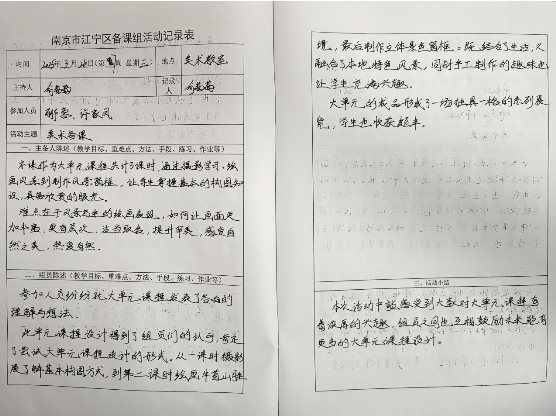 南京市江宁区备课组活动记录表
时间 年3月 日(第 周 星期三) 地点 美术教室
主持人 记录人
参加人员 许家凤
活动主题 美术备课
一、主备人陈述(教学目标、重难点、方法、手段、练习、作业等)
本课作为大单元课程共计3课时,通过摄影学习、绘
画风景到制作风景窗框,让学生掌握基本的构图知
识,具备欣赏的眼光。
难点在于风景写生的绘画表现,如何让画面更
加丰富,更有层次,适当取舍,提升审美,感受自
然之美,热爱自然。
二、组员陈述(教学目标、重难点、方法、手段、练习、作业等)
参加人员纷纷就大单元课程发表了各自的
理解与想法。
此单元课程设计得到了组员们的认可,肯定
了尝试大单元课程设计的形式。从一课时摄影
展了解基本构图方式,到第二课时绘画牛首山胜
境,最后制作立体景色窗框。既结合了生活,又
融合了本地特色风景,同时手工制作的趣味也
让学生充满兴趣。
大单元的成品形成了一场独具一格的系列展
览,学生也收获颇丰。
三、活动小结
本次活动中能感受到大家对大单元课程有
着浓厚的兴趣,组员之间也互相鼓励未来能有
更多的大单元课程设计。